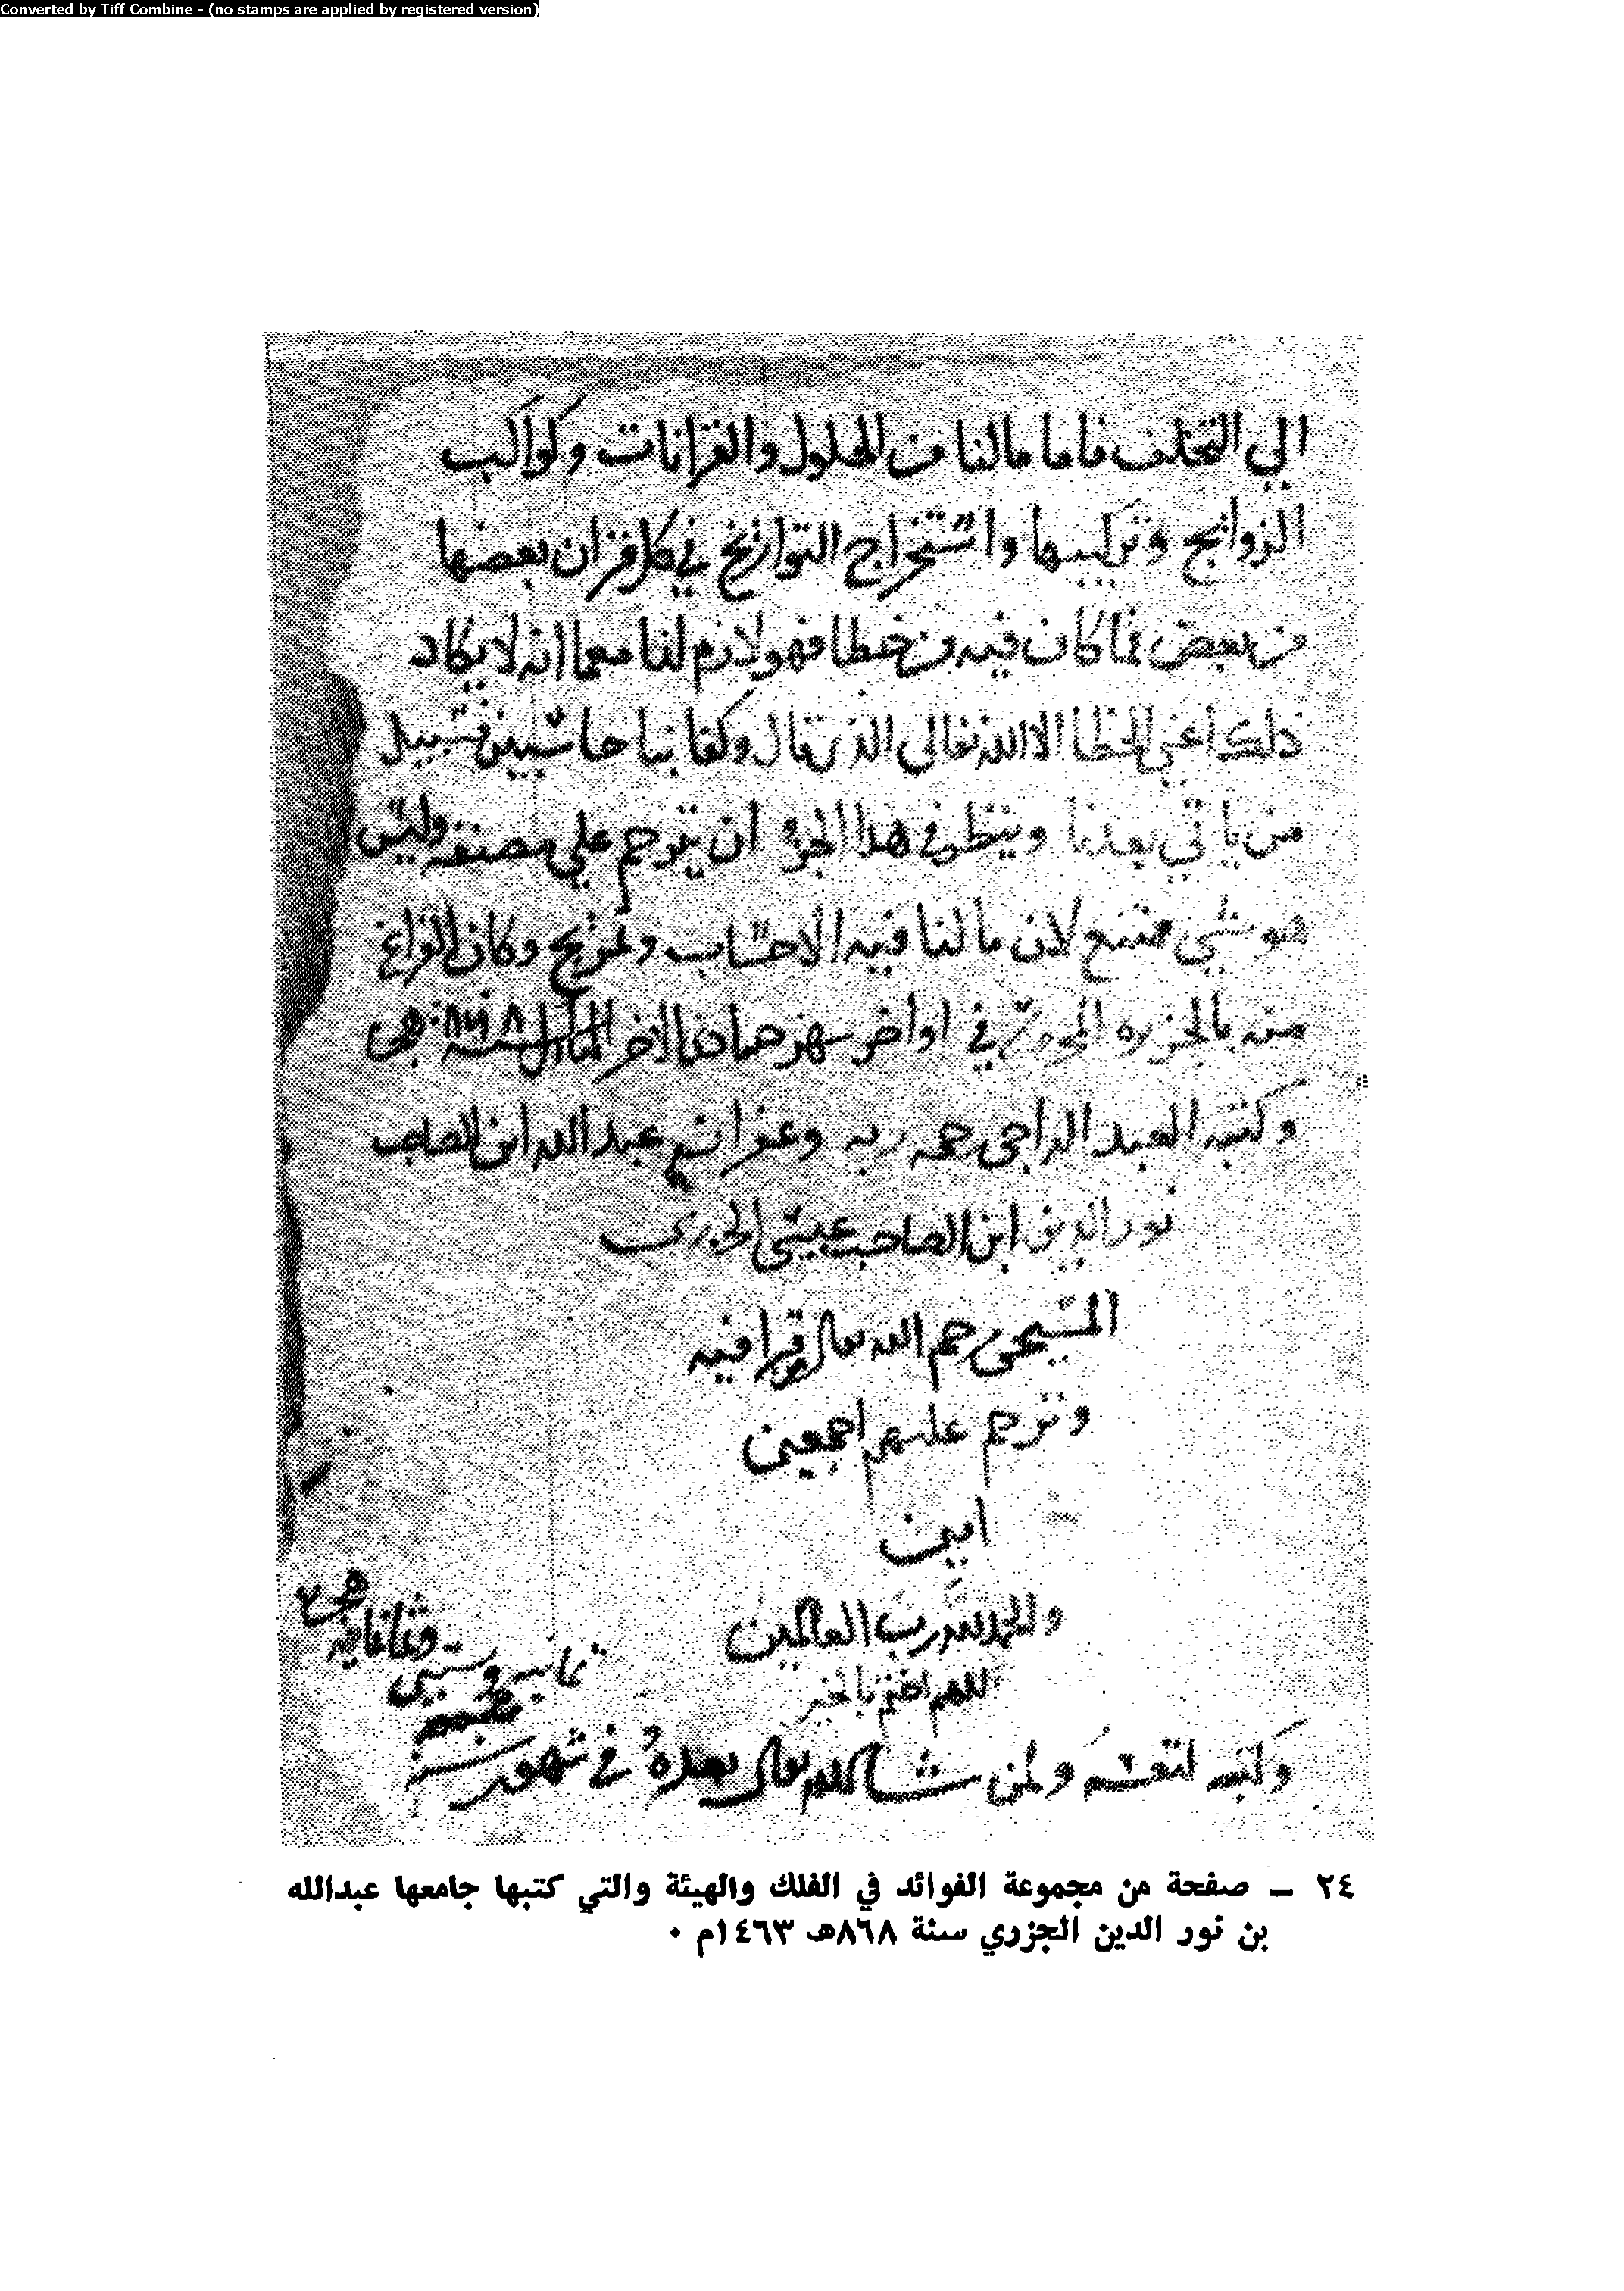 Converted by Tiff Combine - (no stamps are applied by registered version)
الي التخلف فاما مالنا من الحلول والقرانات وكواكب
الزوايج وتركيبها واستخراج التواريخ في كل قران بعضها
من بعض فما كان فيه من خطا فهو لازم لنا معما انه لا يكاد
ذلك اعني الخطا الا الله تعالي الذي قال وكفا بنا حاسبين فسبيل
من ياتي بعدنا وينظر في هذا الجزو ان يترحم علي مصنفه وليس
هو شي ممتنع لان مالنا فيه الا حساب وتخريج وكان الفراغ
منه بالجزيره في اواخر شهر جمادا الاخر سنة ٨٦٨ هجر
وكتبه العبد الراجي رحمه ربه وغفرانه عبد الله ابن الصاحب
نور الدين ابن الصاحب عيسى الجزري
المسيحي رحم الله تعالى قرا فيه
وترحم عليهم اجمعين
امين
والحمد لله رب العالمين
اللهم اختم بالخير
وكتبه لنفسه ولمن شا الله تعالى بعده في شهور سنة
ثمانيه وستين
وثمانمايه
هجريه
٢٤ – صفحة من مجموعة الفوائد في الفلك والهيئة والتي كتبها جامعها عبدالله
بن نور الدين الجزري سنة ٨٦٨هـ ١٤٦٣م .